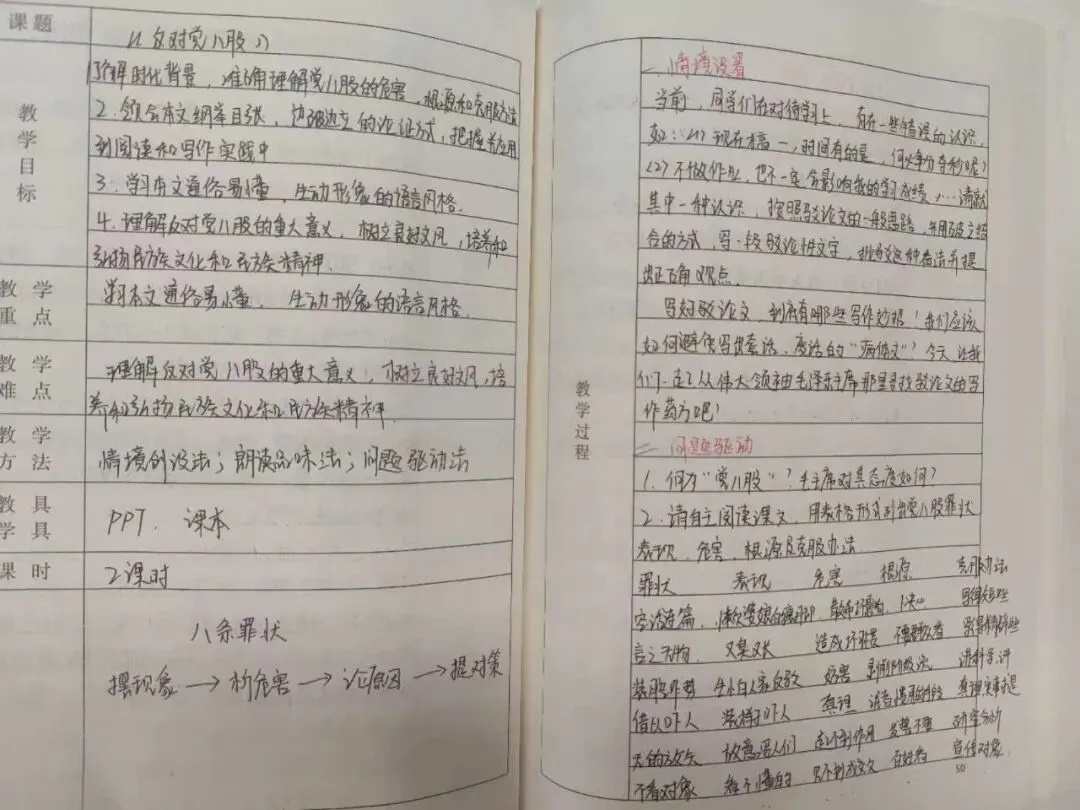 课题
《反对党八股》
教学目标
1.了解时代背景，准确理解党八股的危害、根源和克服方法
2.领会本文纲举目张，边破边立的论证方式，把握并应用
到阅读和写作实践中
3.学习本文通俗易懂、生动形象的语言风格.
4.理解反对党八股的重大意义，树立良好文风，培养和
弘扬民族文化和民族精神.
教学重点
学习本文通俗易懂 生动形象的语言风格.
教学难点
理解反对党八股的重大意义，树立良好文风，培
养和弘扬民族文化和民族精神.
教学方法
情境创设法；朗读品味法；问题驱动法
教具学具
PPT. 课本
课时
2课时
八条罪状
摆现象→析危害→论原因→提对策
教学过程
一、情境设置
当前，同学们在对待学习上，存在一些错误的认识，
如：(1)现在才高一，时间有的是，何必争分夺秒呢？
(2)不做作业，也不一定会影响我的学习成绩，…请就
其中一种认识，按照驳论文的一般思路，采用破立结
合的方式，写一段驳论性文字，批驳这种看法并提
出正确观点.
写好驳论文，到底有哪些写作妙招！我们应该
如何避免写出套话、废话的“病体文”？今天让我
们一起从伟大领袖毛泽东主席那里寻找驳论文的写
作药方吧！
二、问题驱动
1.何为“党八股”？毛主席对其态度如何？
2.请自主阅读课文，用表格形式列出党八股罪状
表现、危害、根源及克服办法.
罪状 表现 危害 根源 克服办法
空话连篇， 懒婆娘的裹脚 写得短些
言之无物. 又臭又长 造成坏 不要 写得精粹些
装腔作势 妨害 讲科学,讲
借以吓人 装样子吓人 真理
无的放矢 起不到作用 研究分析
不看对象 看不懂的 宣传对象.
50